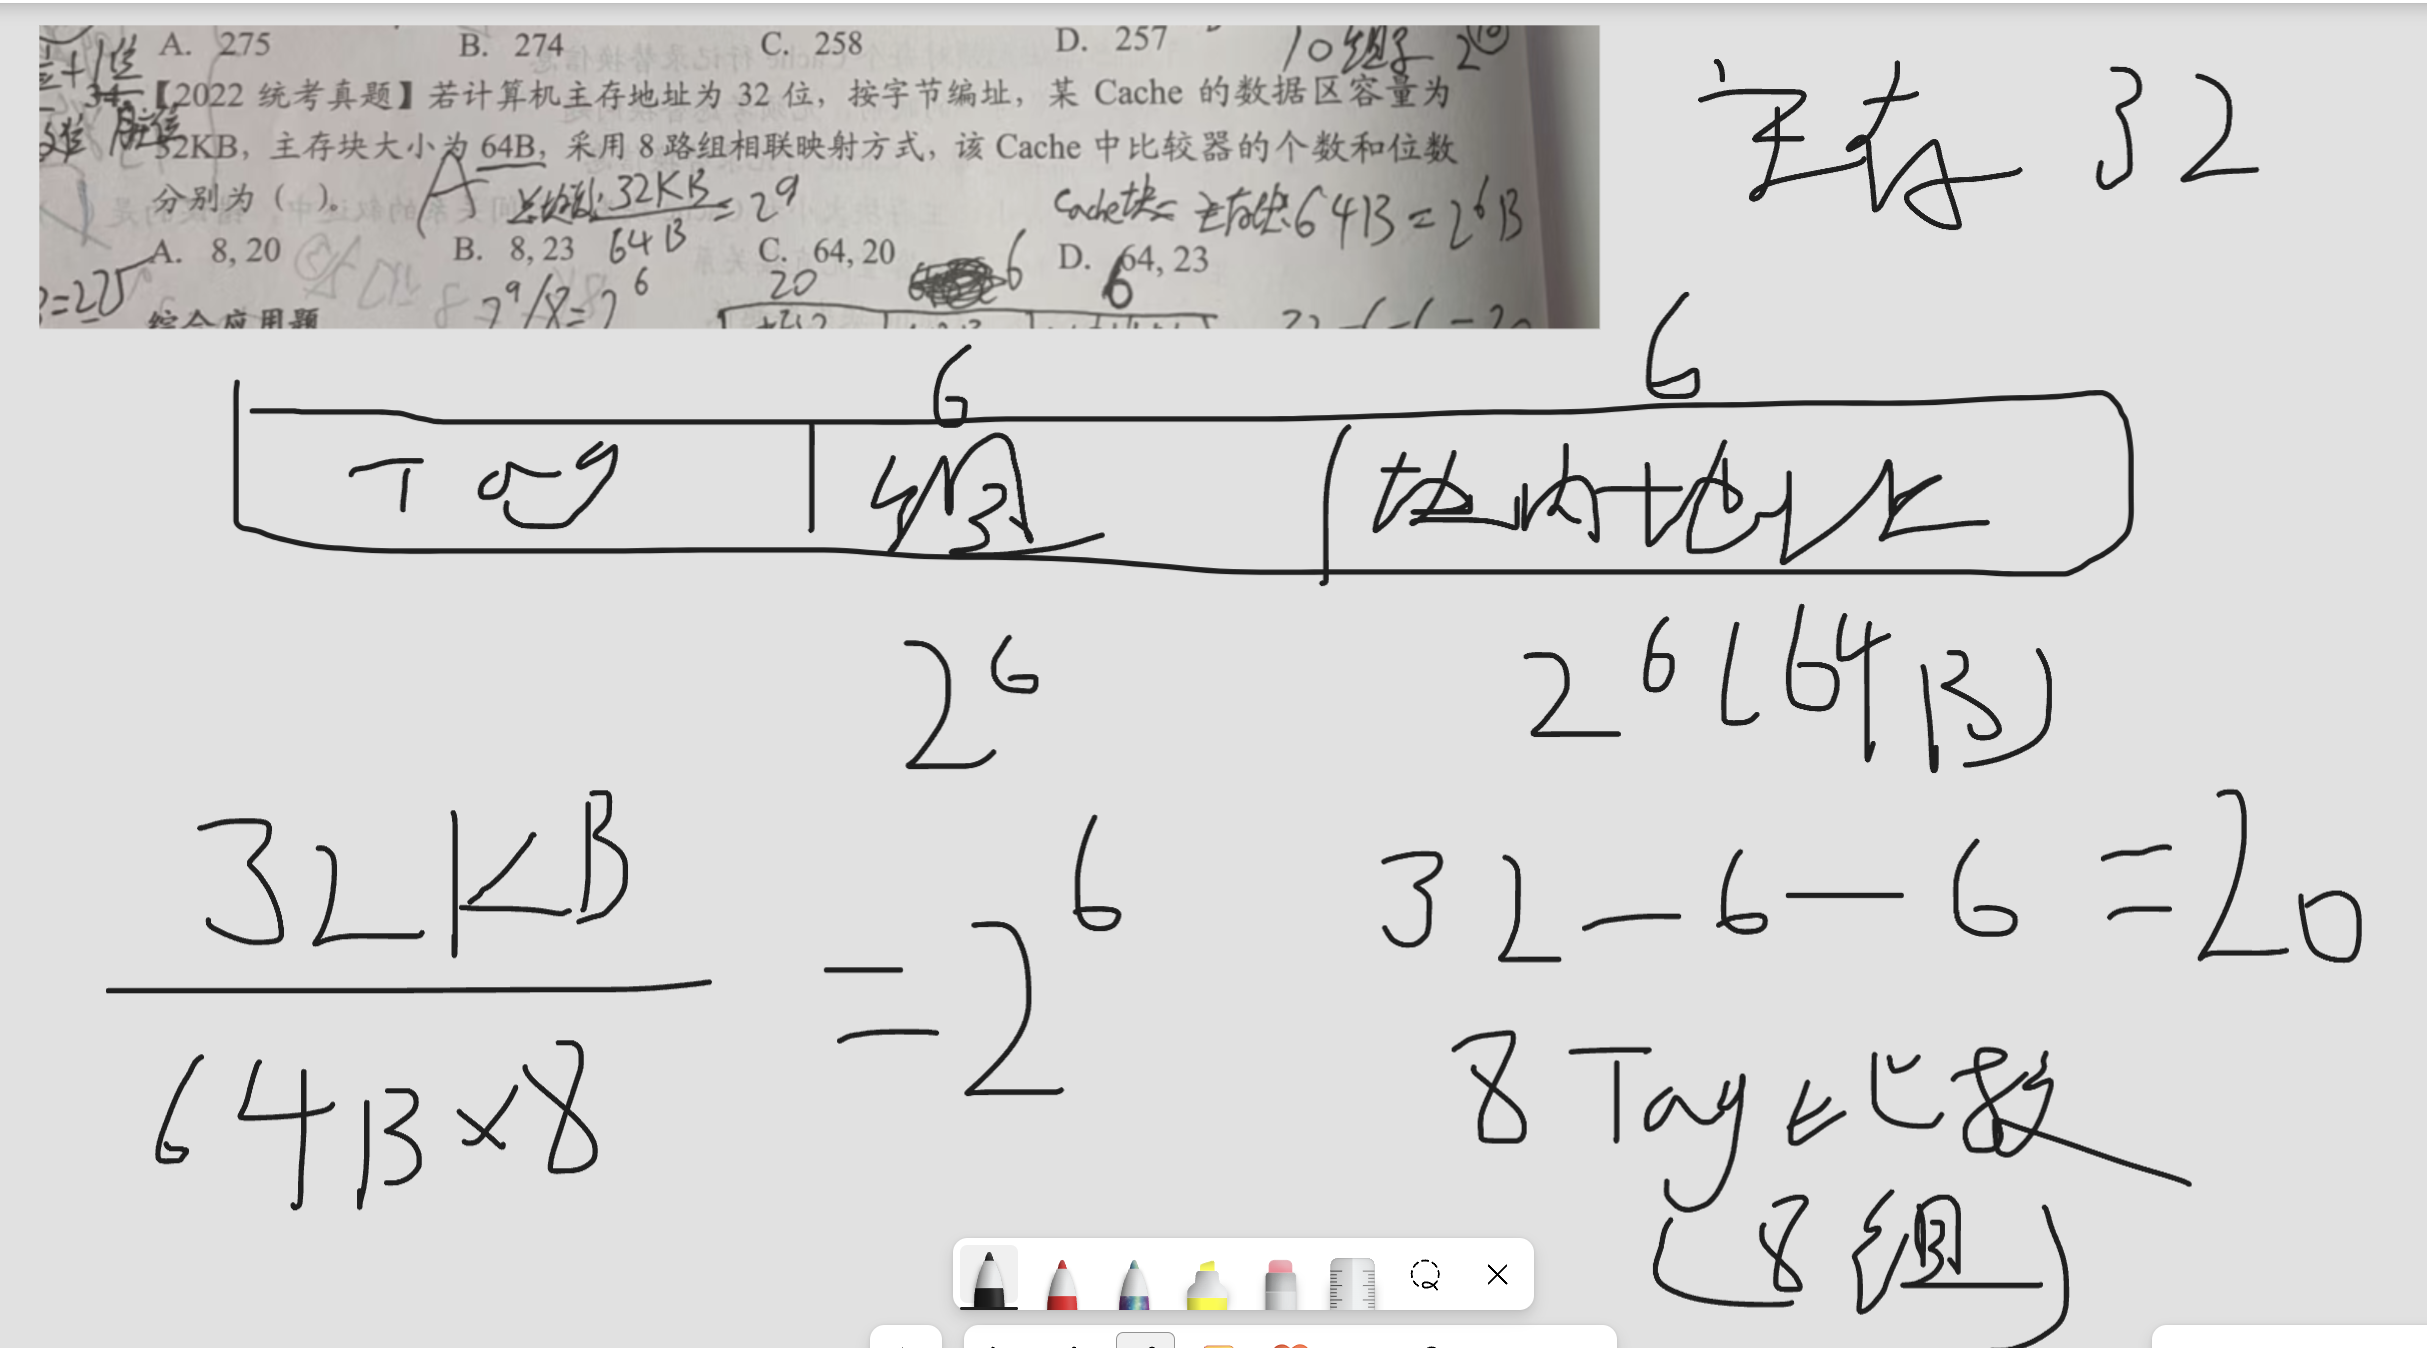 A. 275 B. 274 C. 258 D. 257
10组号 2^10
34. 【2022 统考真题】若计算机主存地址为 32 位，按字节编址，某 Cache 的数据区容量为
32KB，主存块大小为 64B，采用 8 路组相联映射方式，该 Cache 中比较器的个数和位数
分别为（ ）。
A 32KB/64B = 2^9
Cache块= 主存块 64B = 2^6 B
A. 8, 20 B. 8, 23 C. 64, 20 D. 64, 23
2^9/8=2^6 20 6 6
综合应用题
32-6-6=20
主存 32
6 6
Tag 组 块内地址
2^6 2^6 (64B)
32KB
64B×8
= 2^6
32-6-6=20
8 Tag 比较
(8组)